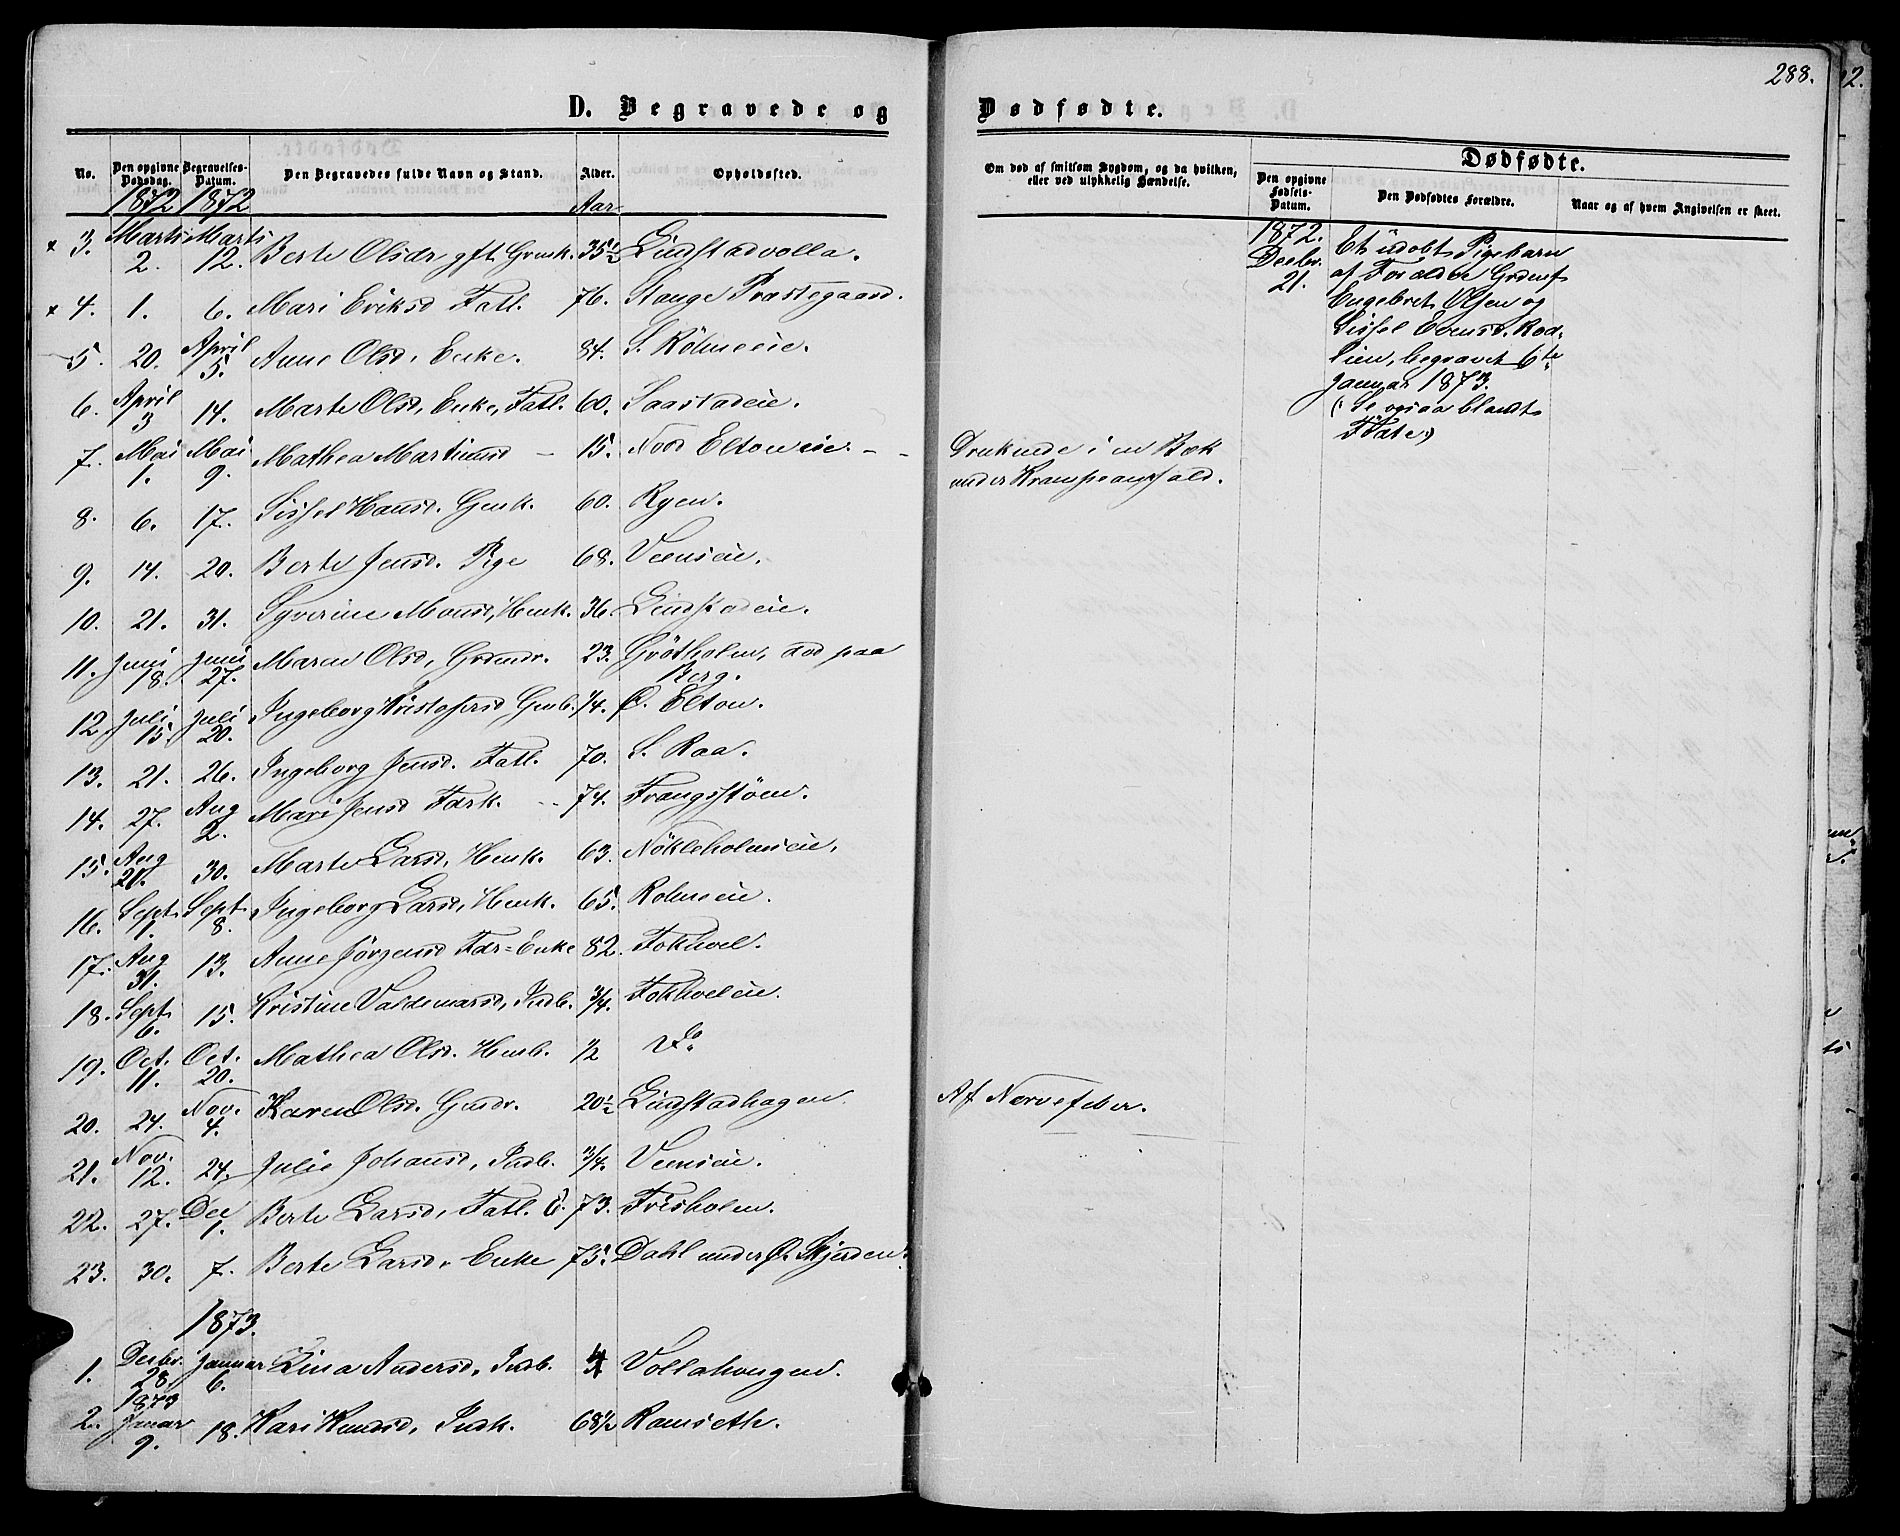 288.
D. Begravede og Dødfødte.
No. Den opgivne Dødsdag. Begravelses-Datum. Den Begravedes fulde Navn og Stand. Alder. Opholdssted.
Om død af smitsom Sygdom, og da hvilken, eller ved ulykkelig Hændelse.
Dødfødte.
Den opgivne Fødsels-Datum. Den Dødfødtes Forældre. Naar og af hvem Angivelsen er skeet.
1872 1872 Aar
3. Marts 2. Marts 12. Berte Olsdr gft. Grmk. 35½ Lindstadvolla.
4. 1. 6. Mari Eriksd Fatl. 76. Stange Præstegaard.
5. 20. April 5. Anne Olsd, Enke. 84. S. Rölmeie.
6. April 3 14. Marte Olsd, Enke, Fatl. 60. Saastadeie.
7. Mai 1. Mai 9. Mathea Martinusd – 15. Nord Elton eie. – – Druknede i en Bæk
under Krampeanfald.
8. 6. 17. Sissel Hansd. Gmk. 60. Ryen.
9. 14. 20. Berte Jensd. Pige 68. Veeneie.
10. 21. 31. Syverine Monsd, Hmk. 36. Lindstadeie.
11. Juni 18. Juni 27. Maren Olsd, Grdmdr. 23. Grötholm, död paa
Berg.
12 Juli 15. Juli 20. Ingeborg Kristofersd Gmb. 1/4. Ø. Elton.
13. 21. 26. Ingeborg Jensd. Fatl. 70. S. Raa.
14. 27. Aug 2. Mari Jensd Fdrk. -- 74. Frangsstöen.
15. Aug 21. 30. Marte Larsd, Hmk. 63. Nökleholmeie.
16. Sept. 1. Sept. 8. Ingeborg Larsd, Hmk. 65. Rolmeie.
17. Aug 31. 13. Anne Jörgensd Fdr=Enke 82. Fokhoel.
18. Sept 6. 15. Kristine Valdemarsd, Indb. 3/4. Fokhoeleie.
19. Oct. 11. Oct. 20. Mathea Olsd. Hmb. 1/2 Do
20. 24. Nov. 4. Karen Olsd. Gmdr. 20½ Lindstadhagen Af Nervefeber.
21. Nov. 12. 24. Julie Johansd, Indb. 3/4. Veeneie.
22. 27. Dec 1. Berte Larsd, Fatl. E. 73. Frisholm.
23. 30. 7. Berte Larsd, Enke 75. Dahl under Ø. Skjerden.
1873.
1. Decbr. 28. Januar 6. Lina Andersd, Indb. 4 Vollahaugen.
1873
2. Januar 9. 18. Kari Knudsd, Indk. 68½ Ramseth.
1872.
Decbr.
21.
Et udöbt Pigebarn
af Forældre Grdmf
Engebret Olsen og
Sissel Evensd. Röd-
lien, begravet 6te
Januar 1873.
(: Se ogsaa blandt
Födte:)